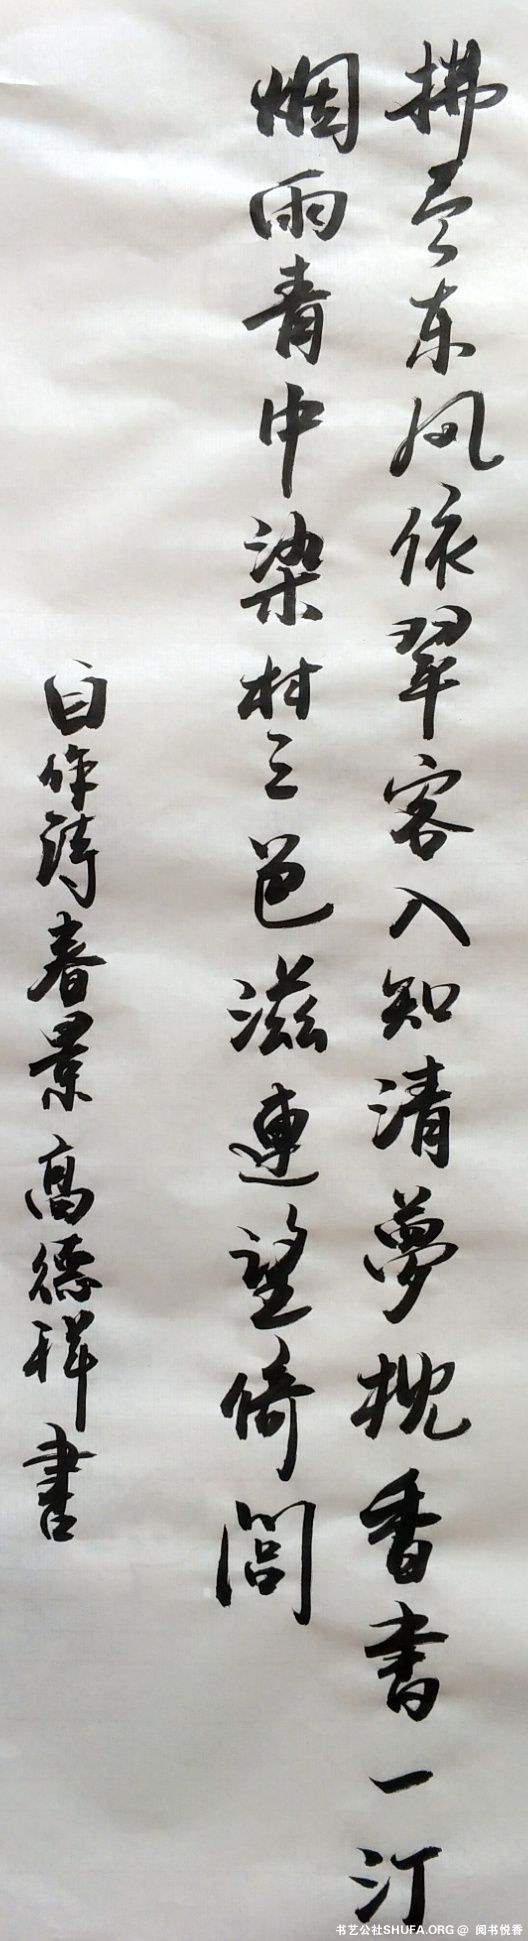 拂尽东风依翠客入知清梦枕香书一汀
烟雨青中染村三邑滋连望倚闾
自作诗春景高德祥书
书艺公社SHUFA.ORG @ 阅书悦香